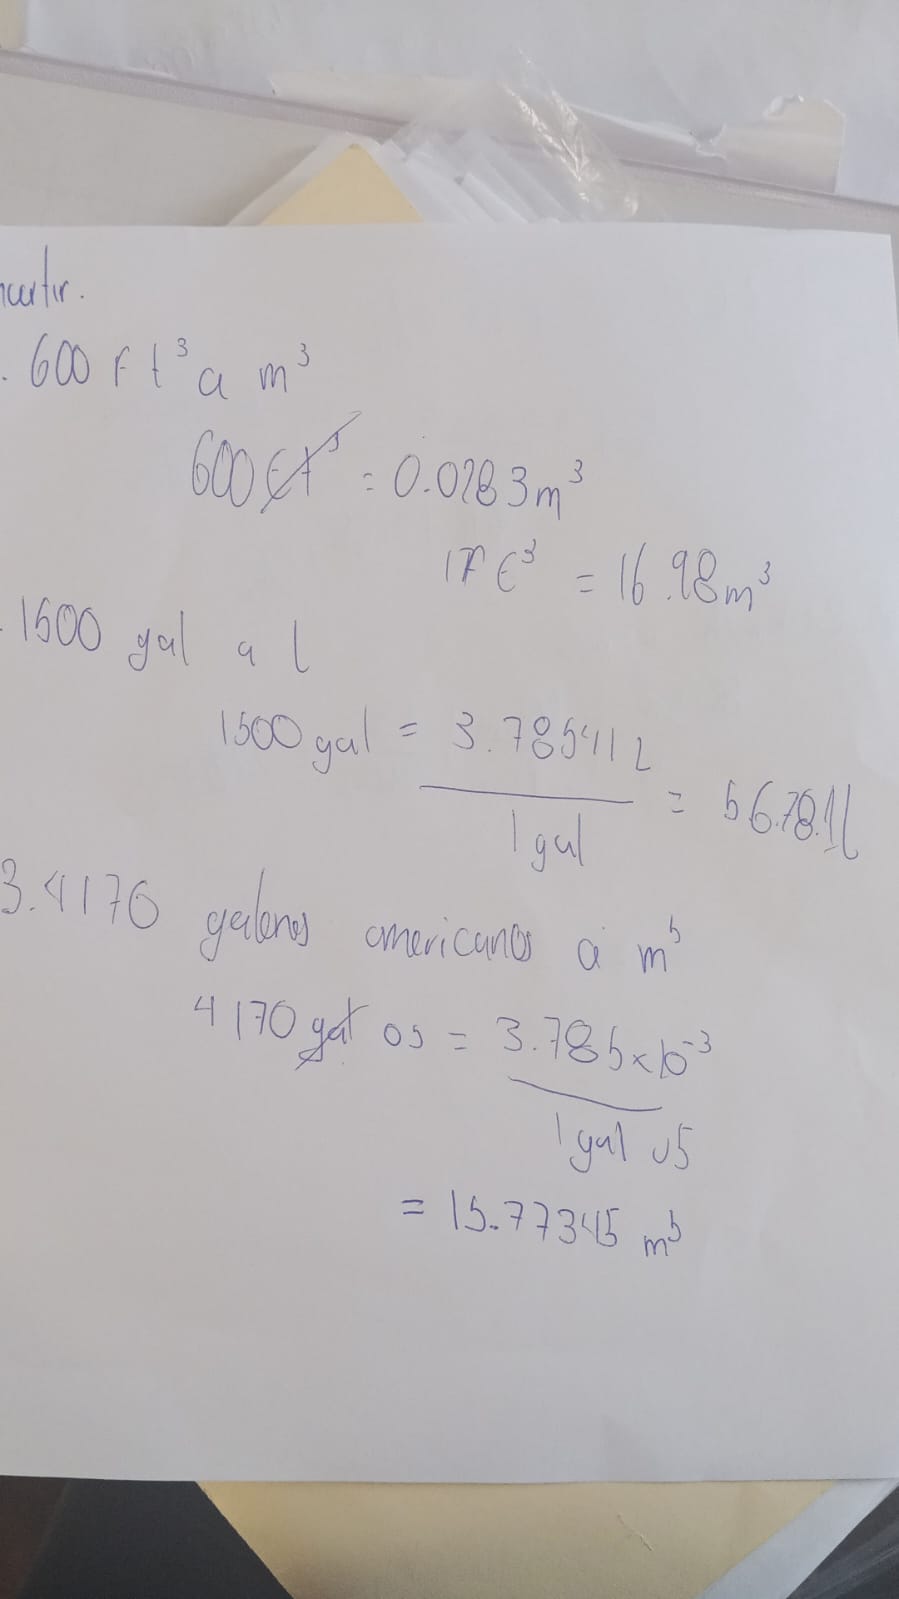 ncertir.
. 600 ft³ a m³
600 ft³ = 0.0283 m³
1 ft³ = 16.98 m³
. 1500 gal a l
1500 gal = 3.78541 L
1 gal
= 5678.1 l
3. 4170 galones americanos a m³
4170 gal us = 3.785 x 10⁻³
1 gal us
= 15.77345 m³